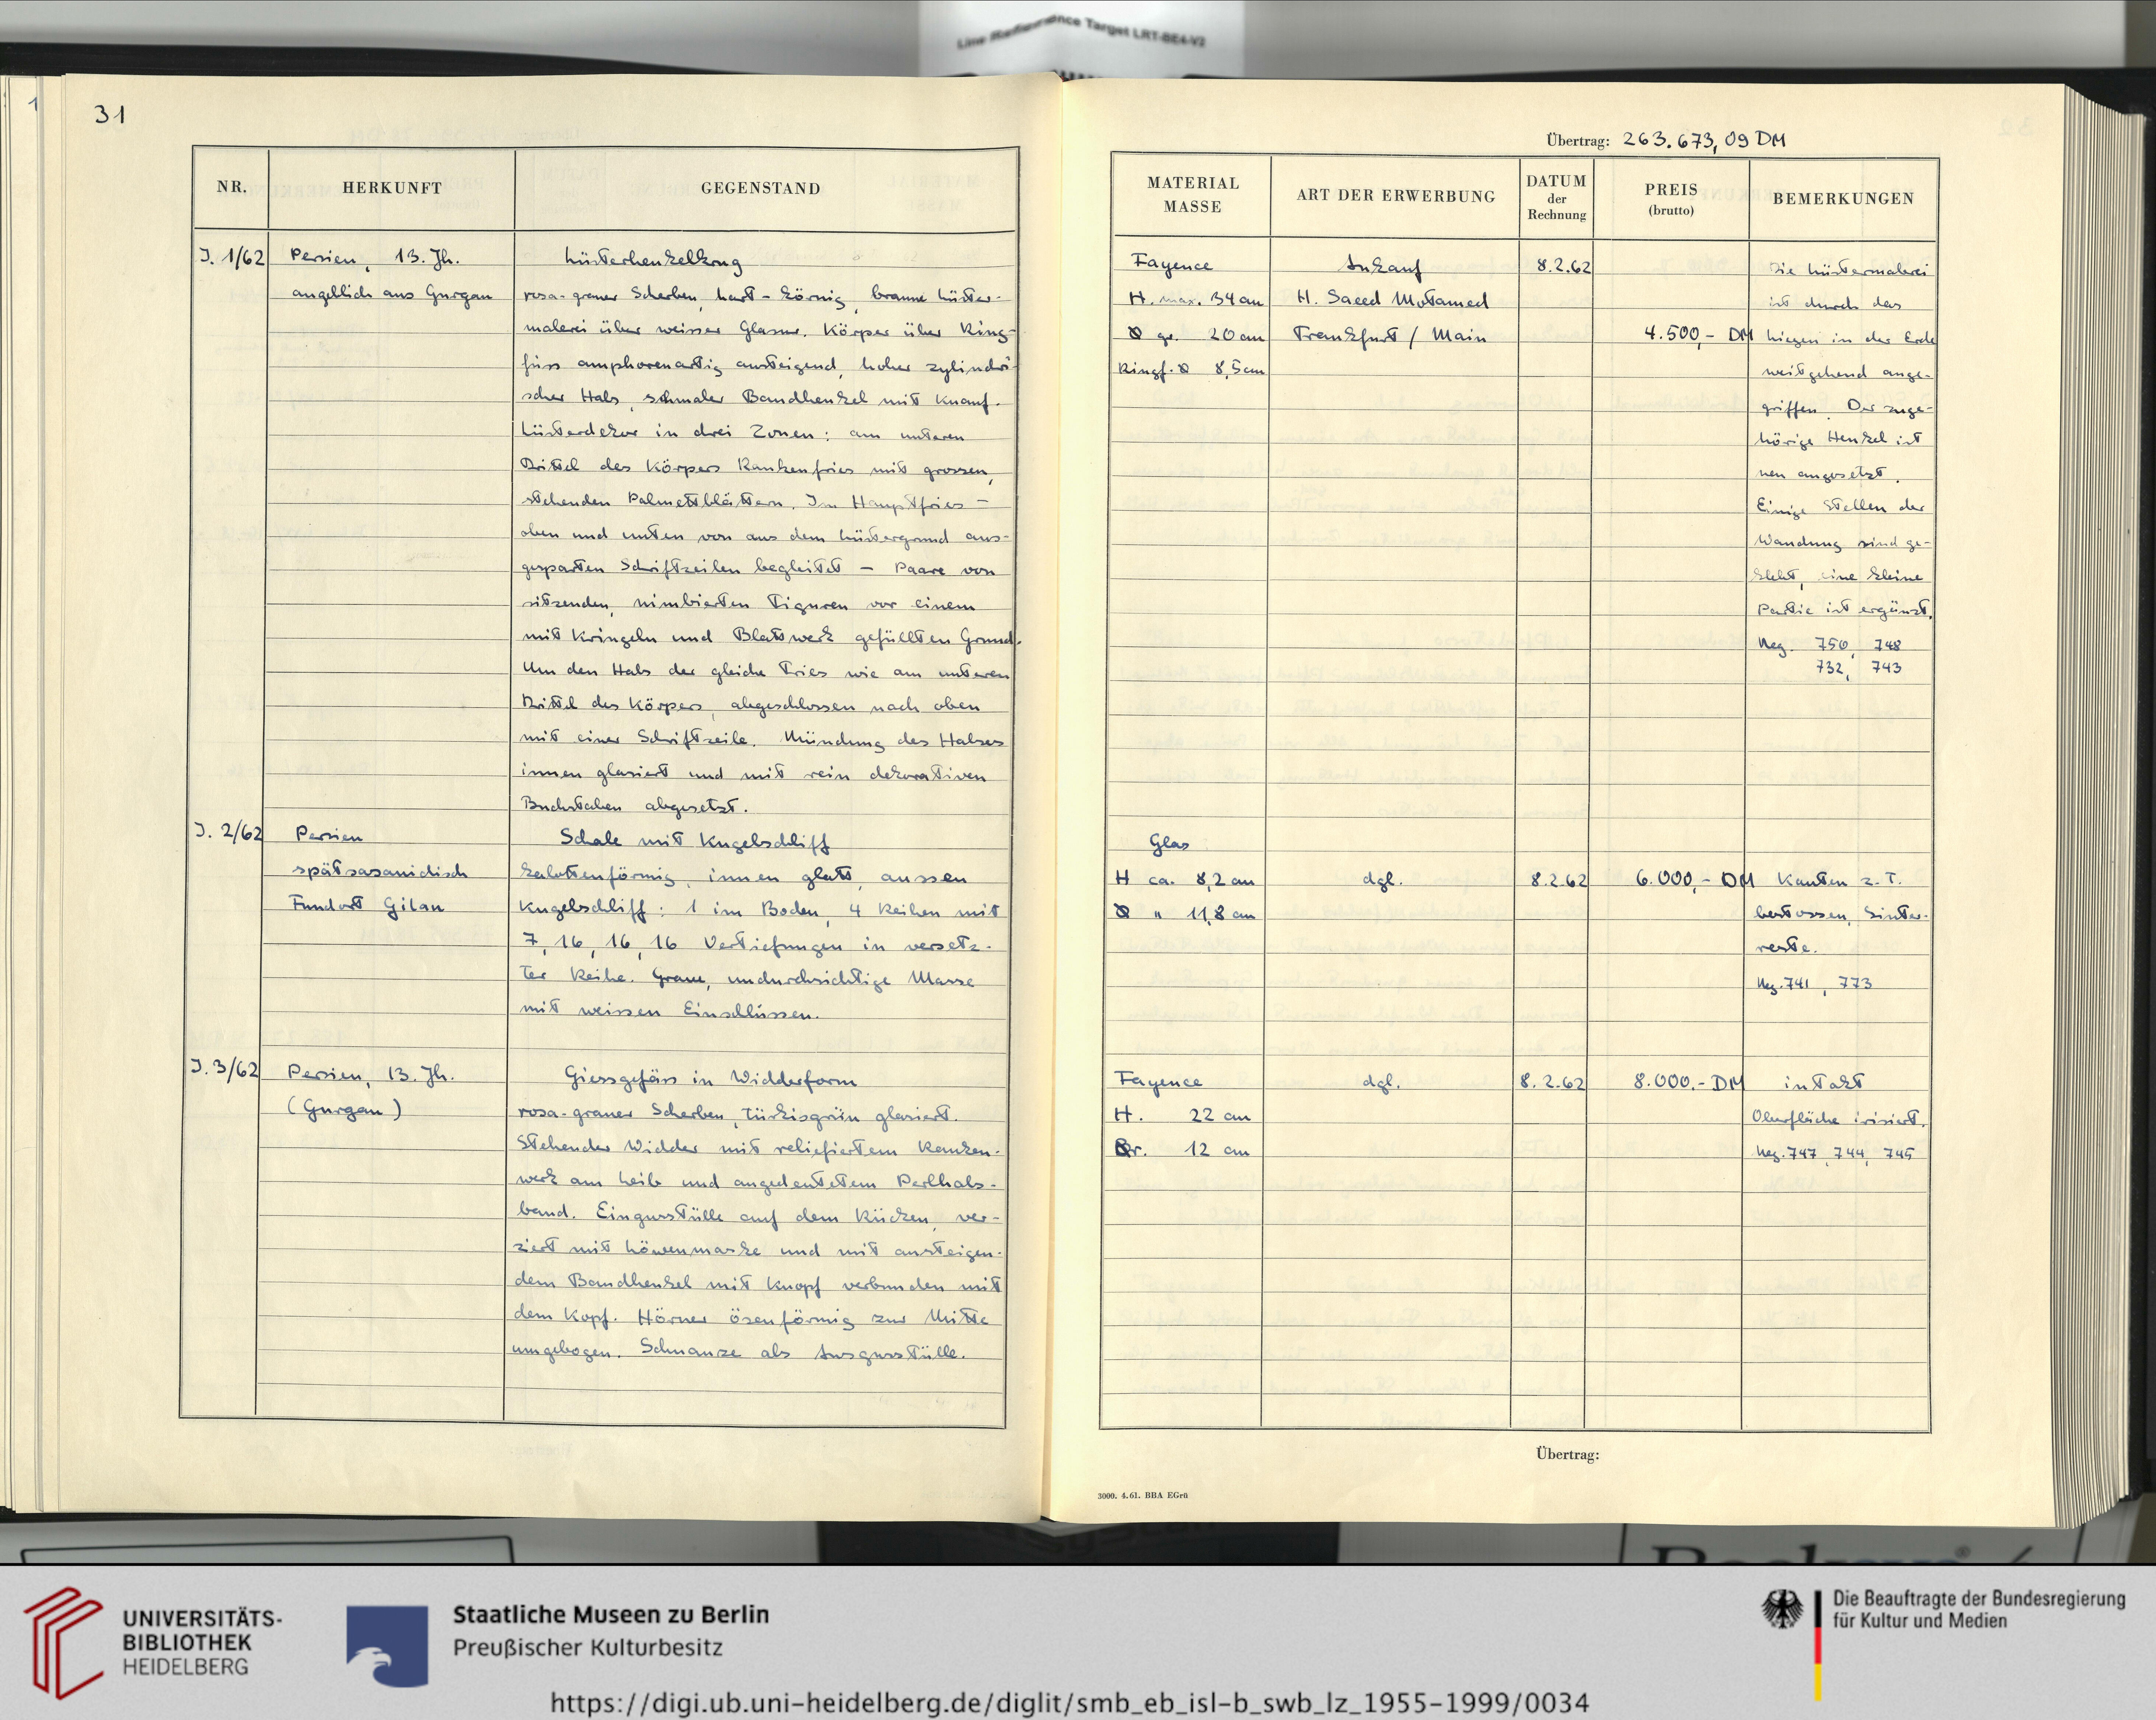 Line Reference Target LRT-BE4-V2
31
NR.
HERKUNFT
GEGENSTAND
J. 1/62
Persien, 13. Jh.
angeblich aus Gurgan
Lüsterhenkelkrug
rosa-grauer Scherben, hart-körnig, braune Lüster-
malerei über weisser Glasur. Körper über Ring-
fuss amphorenartig ansteigend, hoher zylindri-
scher Hals, schmaler Bandhenkel mit Knauf.
Lüsterdekor in drei Zonen: am unteren
Drittel des Körpers Rankenfries mit grossen,
stehenden Palmettblättern. Im Hauptfries –
oben und unten von aus dem Lüstergrund aus-
gesparten Schriftzeilen begleitet – Paare von
sitzenden, nimbierten Figuren vor einem
mit Kringeln und Blattwerk gefüllten Grund.
Um den Hals der gleiche Fries wie am unteren
Drittel des Körpers, abgeschlossen nach oben
mit einer Schriftzeile. Mündung des Halses
innen glasiert und mit rein dekorativen
Buchstaben abgesetzt.
J. 2/62
Persien
spätsasanidisch
Fundort Gilan
Schale mit Kugelschliff
kalottenförmig, innen glatt, aussen
Kugelschliff: 1 im Boden, 4 Reihen mit
7, 16, 16, 16 Vertiefungen in versetz-
ter Reihe. Graue, undurchsichtige Masse
mit weissen Einschlüssen.
J. 3/62
Persien, 13. Jh.
(Gurgan)
Giessgefäss in Widderform
rosa-grauer Scherben, türkisgrün glasiert.
Stehender Widder mit reliefiertem Ranken-
werk am Leib und angedeutetem Perlhals-
band. Eingusstülle auf dem Rücken, ver-
ziert mit Löwenmaske und mit ansteigen-
dem Bandhenkel mit Knopf verbunden mit
dem Kopf. Hörner ösenförmig zur Mitte
umgebogen. Schnauze als Ausgusstülle.
Übertrag: 263.673,09 DM
MATERIAL
MASSE
ART DER ERWERBUNG
DATUM
der
Rechnung
PREIS
(brutto)
BEMERKUNGEN
Fayence
H. max. 34 cm
Ø gr. 20 cm
Ringf. Ø 8,5 cm
Ankauf
H. Saeed Motamed
Frankfurt / Main
8.2.62
4.500,- DM
Die Lüstermalerei
ist durch das
Liegen in der Erde
weitgehend ange-
griffen. Der zuge-
hörige Henkel ist
neu angesetzt.
Einige Stellen der
Wandung sind ge-
klebt, eine kleine
Partie ist ergänzt.
Neg. 750, 748
732, 743
Glas
H ca. 8,2 cm
Ø " 11,8 cm
dgl.
8.2.62
6.000,- DM
Kanten z. T.
bestossen, Sinter-
reste.
Neg. 741, 773
Fayence
H. 22 cm
Br. 12 cm
dgl.
8.2.62
8.000.- DM
intakt
Oberfläche irisiert.
Neg. 747, 744, 745
Übertrag:
3000. 4.61. BBA EGrü
UNIVERSITÄTS-
BIBLIOTHEK
HEIDELBERG
Staatliche Museen zu Berlin
Preußischer Kulturbesitz
Die Beauftragte der Bundesregierung
für Kultur und Medien
https://digi.ub.uni-heidelberg.de/diglit/smb_eb_isl-b_swb_lz_1955-1999/0034